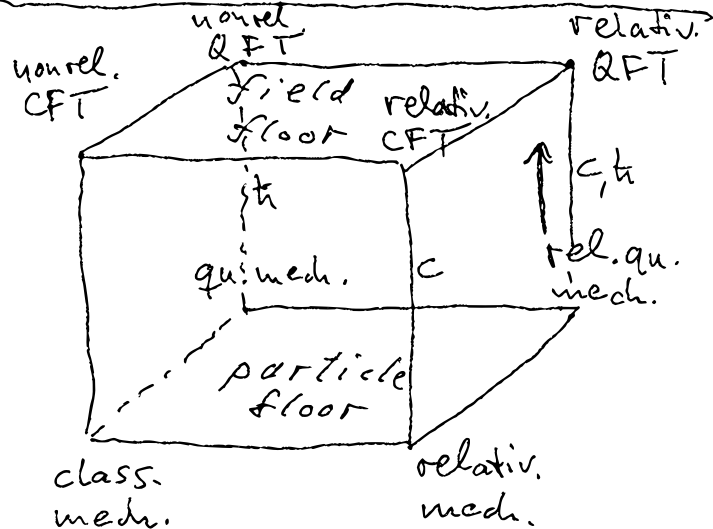 nonrel.
QFT
relativ.
QFT
nonrel.
CFT
field
floor
relativ.
CFT
ħ
c, ħ
qu. mech.
c
rel. qu.
mech.
particle
floor
class.
mech.
relativ.
mech.